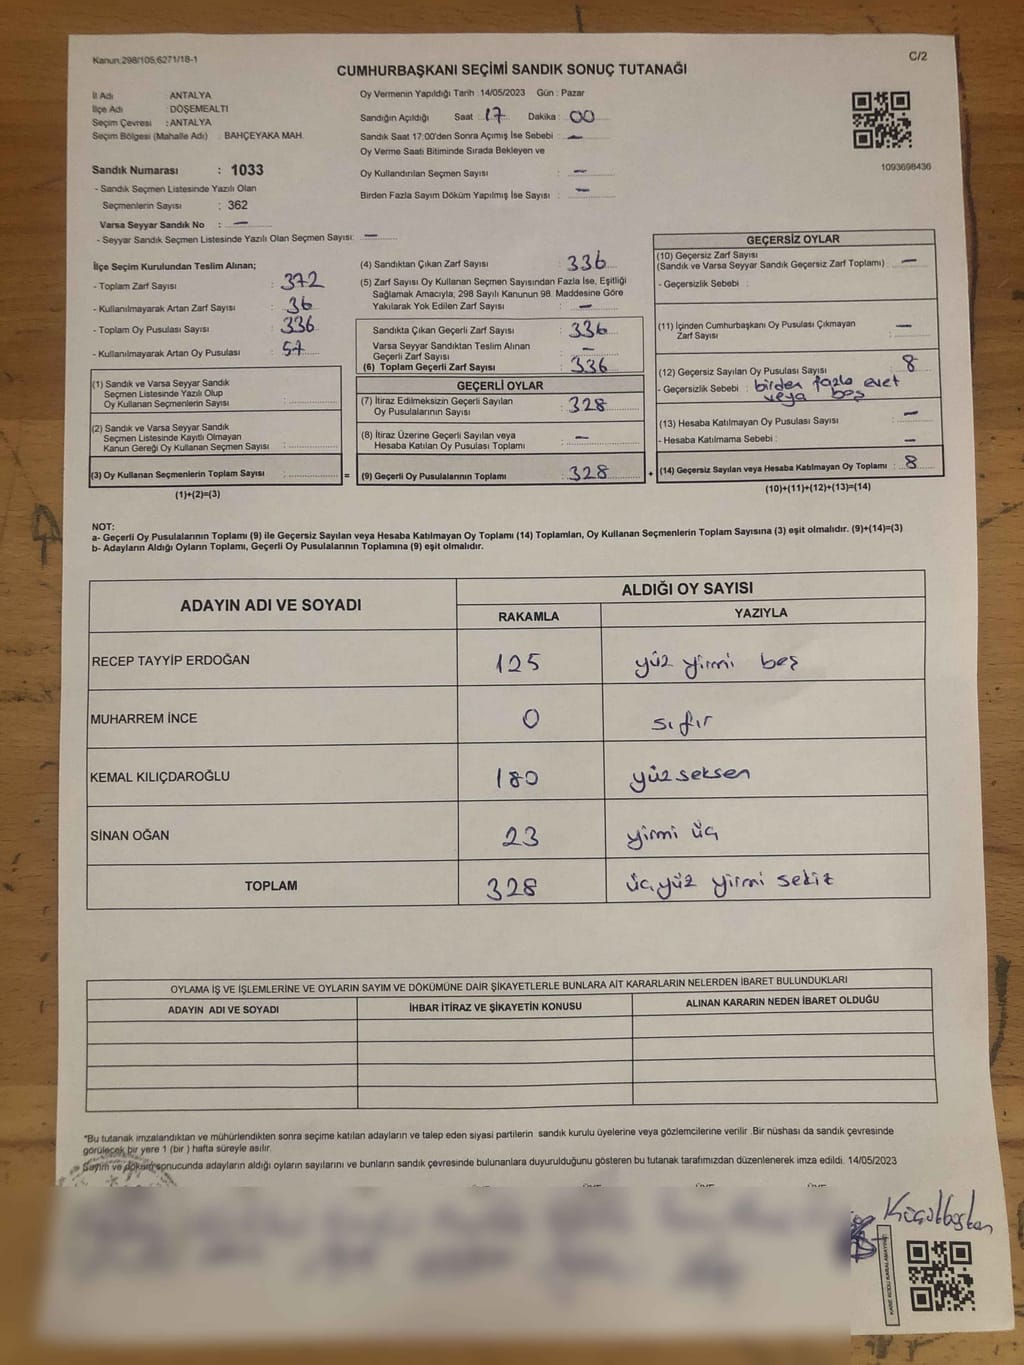 Kanun:298/105;6271/18-1
C/2
CUMHURBAŞKANI SEÇİMİ SANDIK SONUÇ TUTANAĞI
İl Adı : ANTALYA
İlçe Adı : DÖŞEMEALTI
Seçim Çevresi : ANTALYA
Seçim Bölgesi (Mahalle Adı) : BAHÇEYAKA MAH.
Sandık Numarası : 1033
- Sandık Seçmen Listesinde Yazılı Olan
Seçmenlerin Sayısı : 362
Varsa Seyyar Sandık No : —
- Seyyar Sandık Seçmen Listesinde Yazılı Olan Seçmen Sayısı: —
Oy Vermenin Yapıldığı Tarih : 14/05/2023 Gün : Pazar
Sandığın Açıldığı Saat : 17 Dakika : 00
Sandık Saat 17:00'den Sonra Açımış İse Sebebi : —
Oy Verme Saati Bitiminde Sırada Bekleyen ve
Oy Kullandırılan Seçmen Sayısı : —
Birden Fazla Sayım Döküm Yapılmış İse Sayısı : —
1093698436
İlçe Seçim Kurulundan Teslim Alınan;
- Toplam Zarf Sayısı : 372
- Kullanılmayarak Artan Zarf Sayısı : 36
- Toplam Oy Pusulası Sayısı : 336
- Kullanılmayarak Artan Oy Pusulası : 57
(1) Sandık ve Varsa Seyyar Sandık
Seçmen Listesinde Yazılı Olup
Oy Kullanan Seçmenlerin Sayısı :
(2) Sandık ve Varsa Seyyar Sandık
Seçmen Listesinde Kayıtlı Olmayan
Kanun Gereği Oy Kullanan Seçmen Sayısı :
(3) Oy Kullanan Seçmenlerin Toplam Sayısı : =
(1)+(2)=(3)
(4) Sandıktan Çıkan Zarf Sayısı : 336
(5) Zarf Sayısı Oy Kullanan Seçmen Sayısından Fazla İse, Eşitliği
Sağlamak Amacıyla; 298 Sayılı Kanunun 98. Maddesine Göre
Yakılarak Yok Edilen Zarf Sayısı : —
Sandıkta Çıkan Geçerli Zarf Sayısı : 336
Varsa Seyyar Sandıktan Teslim Alınan
Geçerli Zarf Sayısı : —
(6) Toplam Geçerli Zarf Sayısı : 336
GEÇERLİ OYLAR
(7) İtiraz Edilmeksizin Geçerli Sayılan
Oy Pusulalarının Sayısı : 328
(8) İtiraz Üzerine Geçerli Sayılan veya
Hesaba Katılan Oy Pusulası Toplamı : —
(9) Geçerli Oy Pusulalarının Toplamı : 328 +
GEÇERSİZ OYLAR
(10) Geçersiz Zarf Sayısı
(Sandık ve Varsa Seyyar Sandık Geçersiz Zarf Toplamı) : —
- Geçersizlik Sebebi :
(11) İçinden Cumhurbaşkanı Oy Pusulası Çıkmayan
Zarf Sayısı : —
(12) Geçersiz Sayılan Oy Pusulası Sayısı : 8
- Geçersizlik Sebebi : birden fazla evet
veya boş
(13) Hesaba Katılmayan Oy Pusulası Sayısı : —
- Hesaba Katılmama Sebebi : —
(14) Geçersiz Sayılan veya Hesaba Katılmayan Oy Toplamı : 8
(10)+(11)+(12)+(13)=(14)
NOT:
a- Geçerli Oy Pusulalarının Toplamı (9) ile Geçersiz Sayılan veya Hesaba Katılmayan Oy Toplamı (14) Toplamları, Oy Kullanan Seçmenlerin Toplam Sayısına (3) eşit olmalıdır. (9)+(14)=(3)
b- Adayların Aldığı Oyların Toplamı, Geçerli Oy Pusulalarının Toplamına (9) eşit olmalıdır.
ADAYIN ADI VE SOYADI
ALDIĞI OY SAYISI
RAKAMLA YAZIYLA
RECEP TAYYİP ERDOĞAN 125 yüz yirmi beş
MUHARREM İNCE 0 sıfır
KEMAL KILIÇDAROĞLU 180 yüz seksen
SİNAN OĞAN 23 yirmi üç
TOPLAM 328 üç yüz yirmi sekiz
OYLAMA İŞ VE İŞLEMLERİNE VE OYLARIN SAYIM VE DÖKÜMÜNE DAİR ŞİKAYETLERLE BUNLARA AİT KARARLARIN NELERDEN İBARET BULUNDUKLARI
ADAYIN ADI VE SOYADI İHBAR İTİRAZ VE ŞİKAYETİN KONUSU ALINAN KARARIN NEDEN İBARET OLDUĞU
*Bu tutanak imzalandıktan ve mühürlendikten sonra seçime katılan adayların ve talep eden siyasi partilerin sandık kurulu üyelerine veya gözlemcilerine verilir .Bir nüshası da sandık çevresinde
görülecek bir yere 1 (bir ) hafta süreyle asılır.
Sayım ve döküm sonucunda adayların aldığı oyların sayılarını ve bunların sandık çevresinde bulunanlara duyurulduğunu gösteren bu tutanak tarafımızdan düzenlenerek imza edildi. 14/05/2023
KARE KODU KARALAMAYINIZ